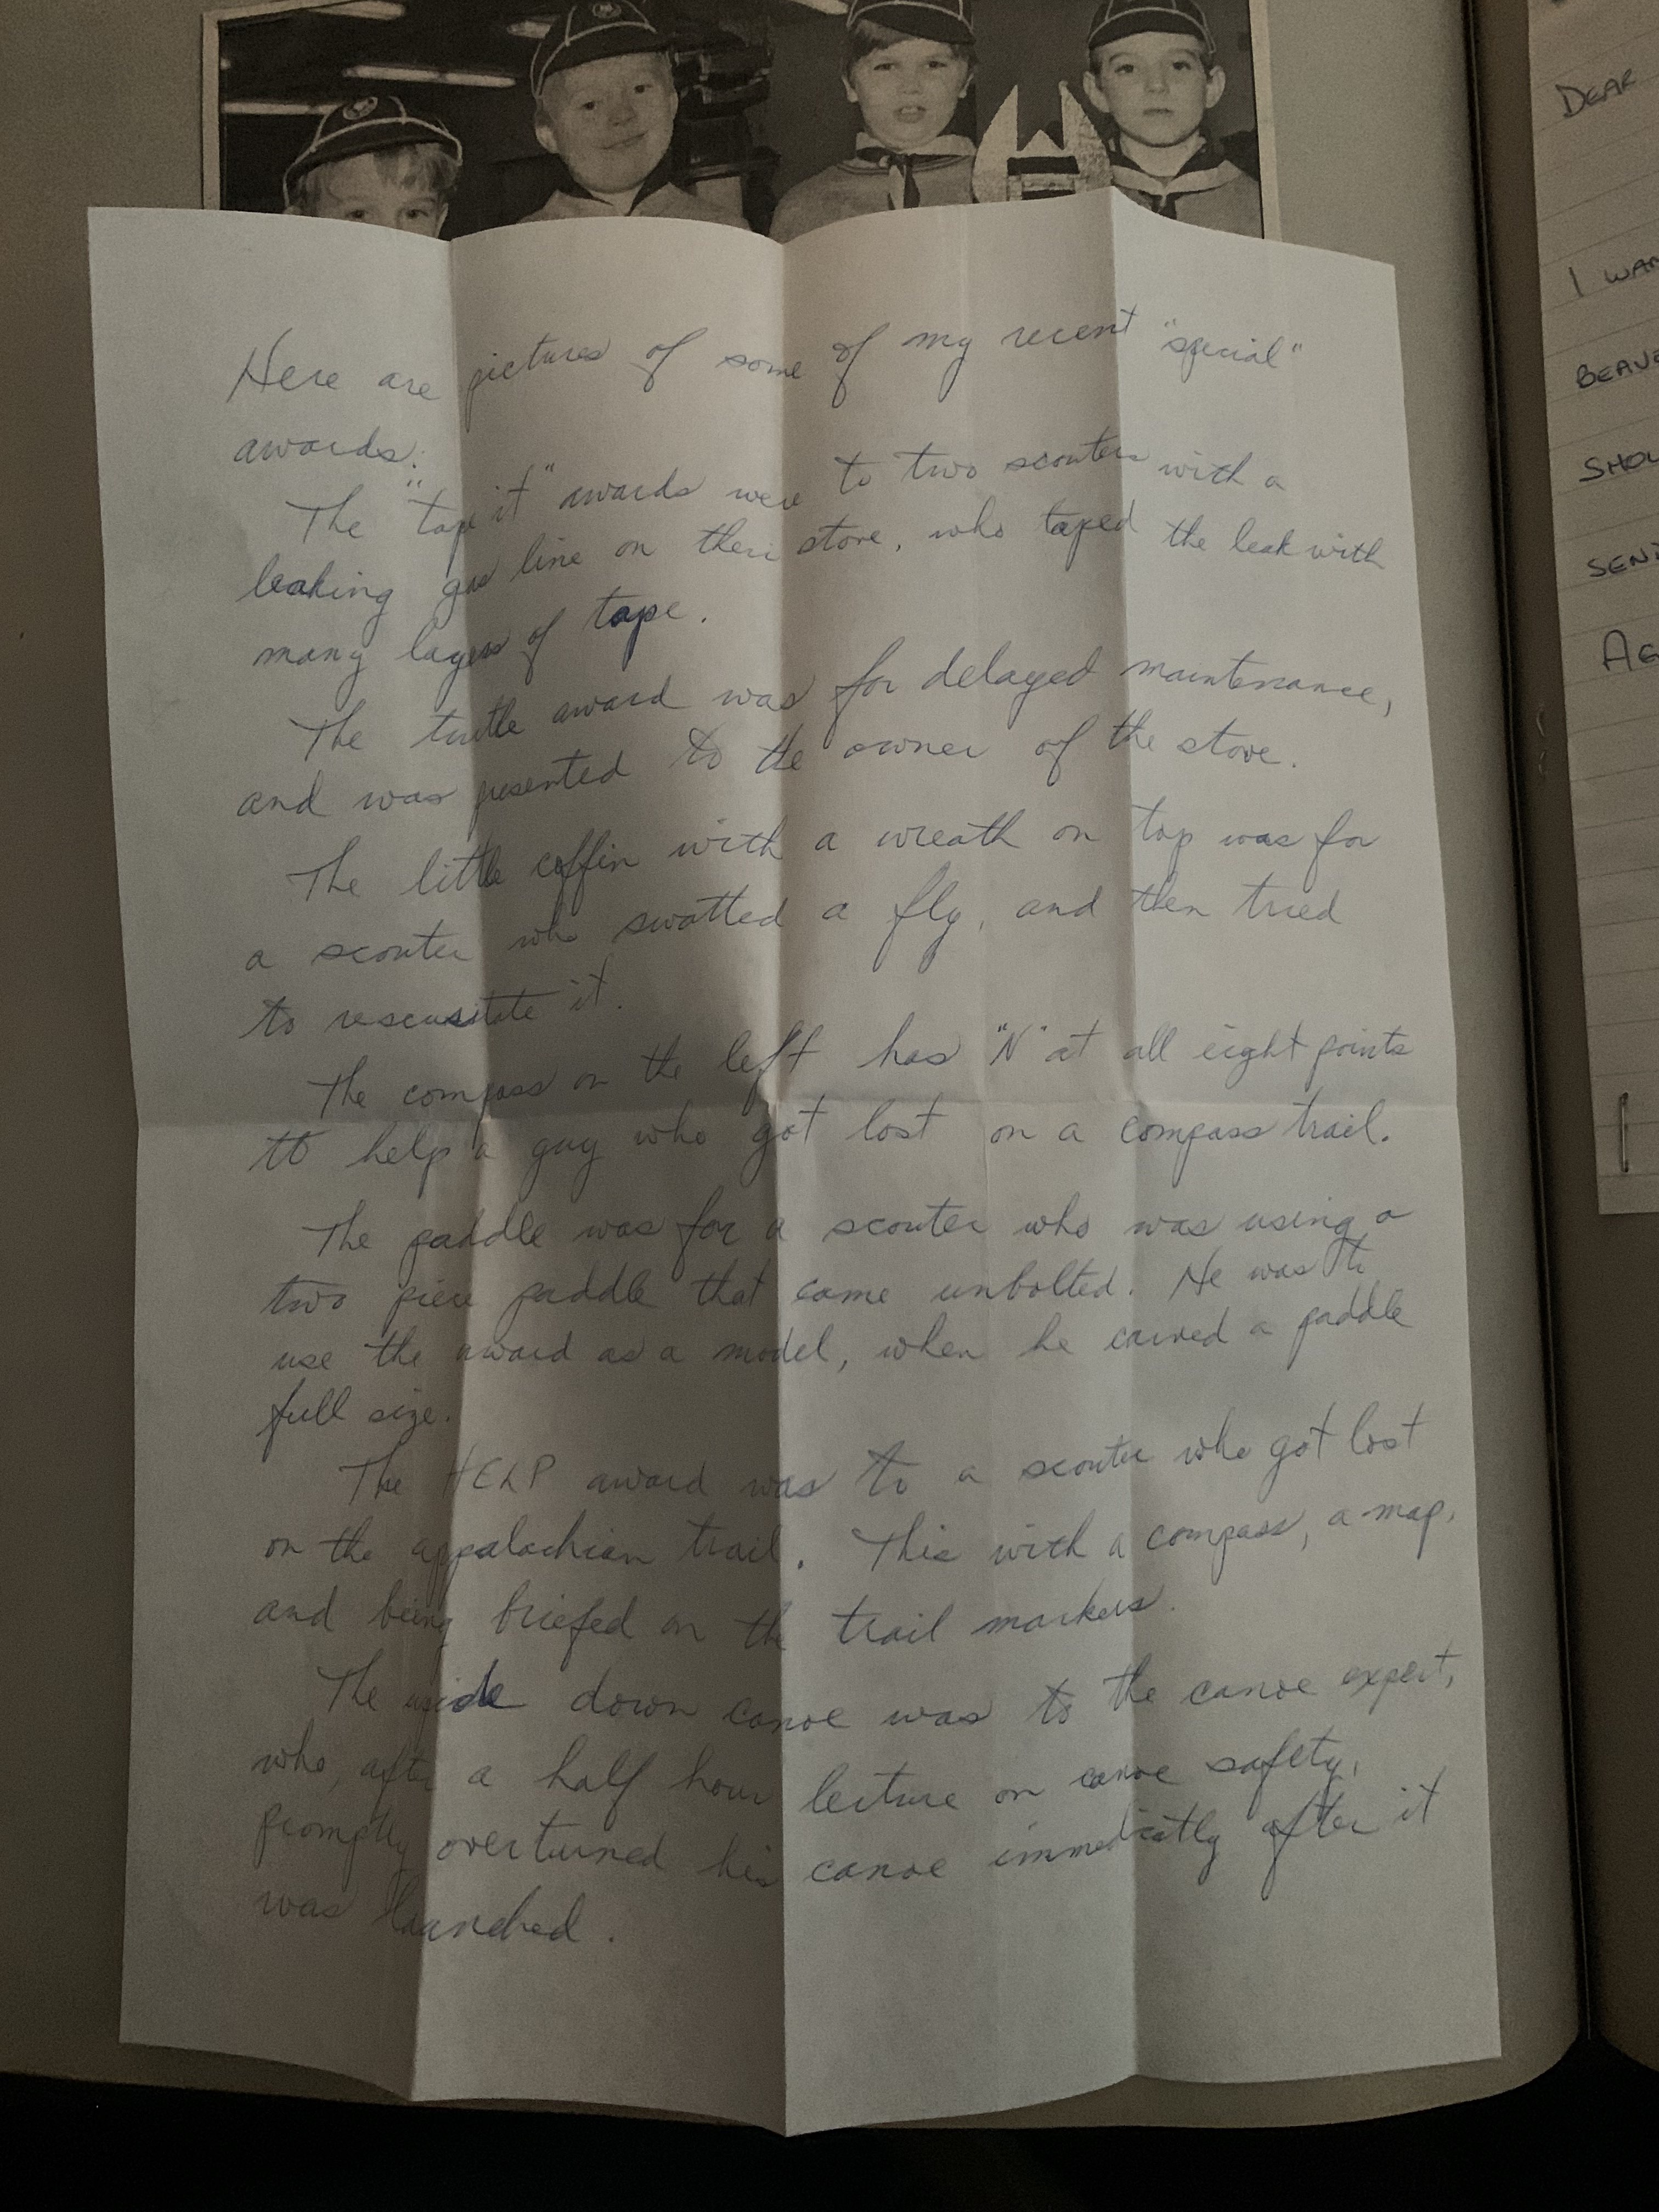 Here are pictures of some of my recent "special"
awards:
The "tape it" awards were to two scouters with a
leaking gas line on their stove, who taped the leak with
many layers of tape.
The turtle award was for delayed maintenance,
and was presented to the owner of the stove.
The little coffin with a wreath on top was for
a scouter who swatted a fly, and then tried
to rescusitate it.
The compass on the left has "N" at all eight points
to help a guy who got lost on a compass trail.
The paddle was for a scouter who was using a
two piece paddle that came unbolted. He was to
use the award as a model, when he carved a paddle
full size.
The HELP award was to a scouter who got lost
on the appalachian trail. This with a compass, a map,
and being briefed on the trail markers.
The upside down canoe was to the canoe expert,
who, after a half hour lecture on canoe safety,
promptly overturned his canoe immediatly after it
was launched.
DEAR
I WAN
BEAVE
SHOU
SEN